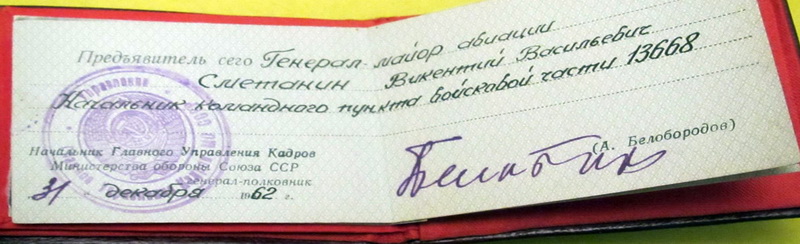 Предъявитель сего Генерал-майор авиации
Сметанин Викентий Васильевич
Начальник командного пункта войсковой части 13668
Начальник Главного Управления Кадров
Министерства обороны Союза ССР
генерал-полковник
(А. Белобородов)
31 декабря 1962 г.